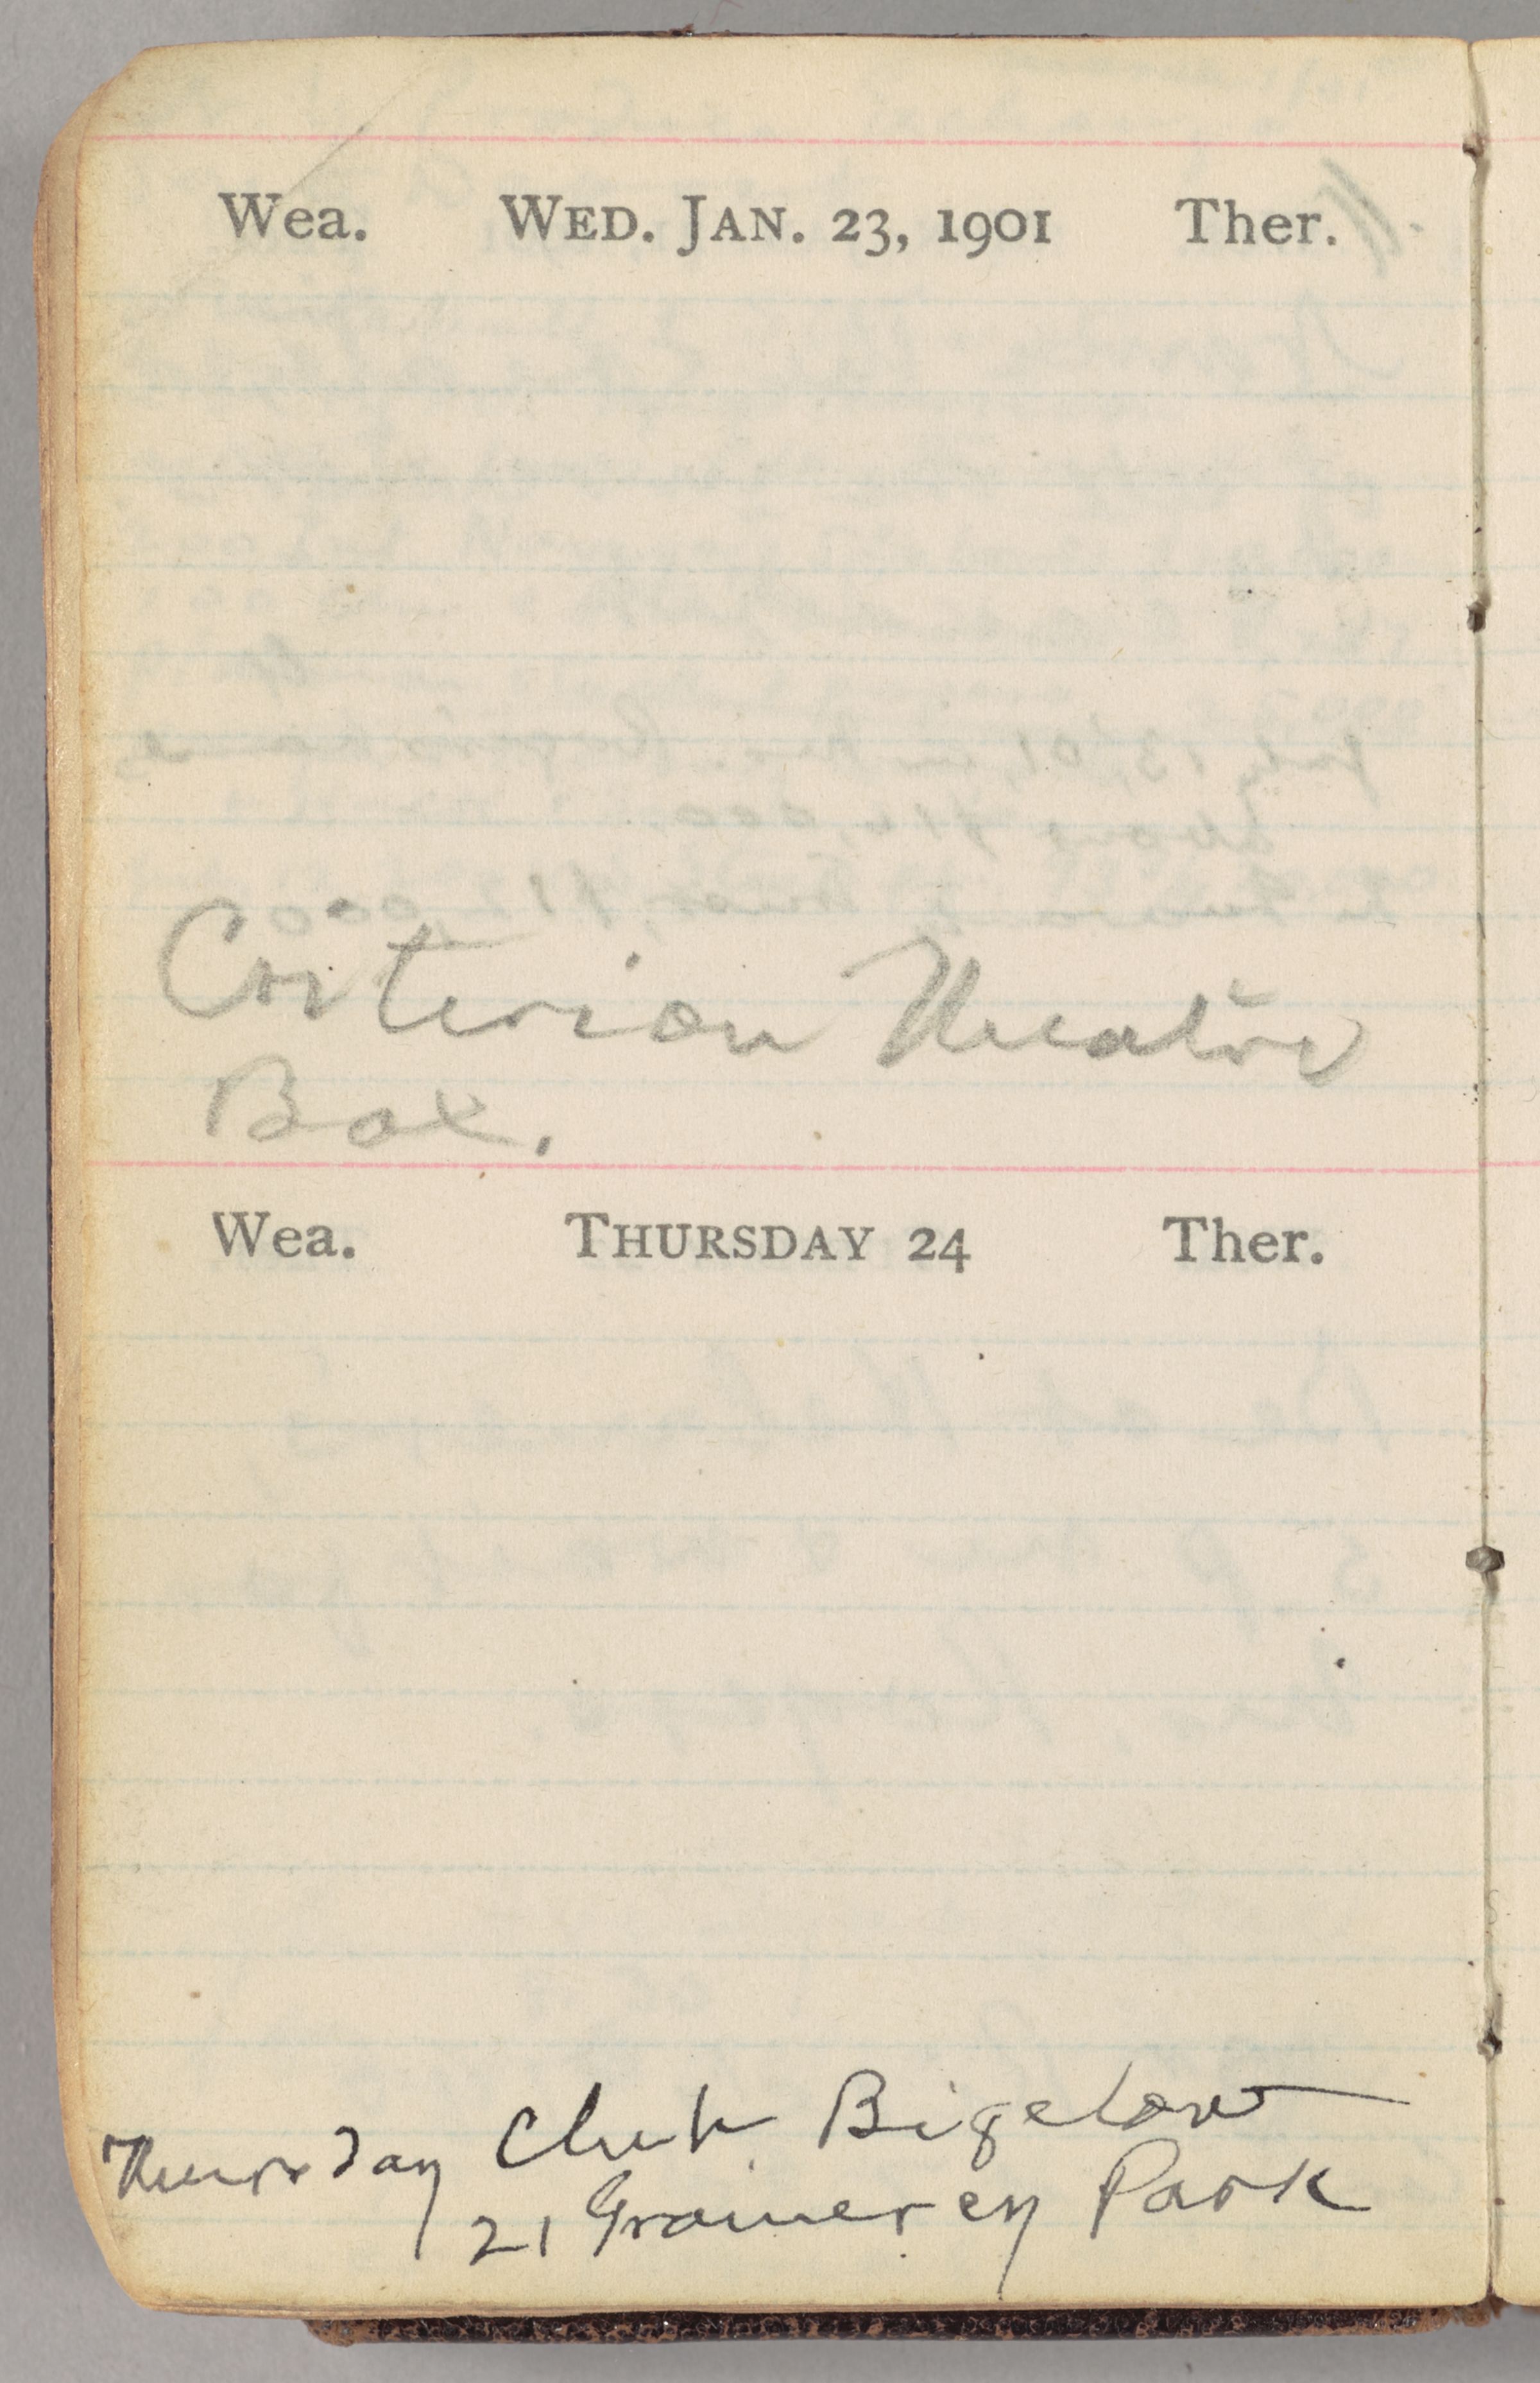 Wea. WED. JAN. 23, 1901 Ther.
Criterion Theatre
Box.
Wea. THURSDAY 24 Ther.
Thursday Club Bigelow
21 Gramercy Park